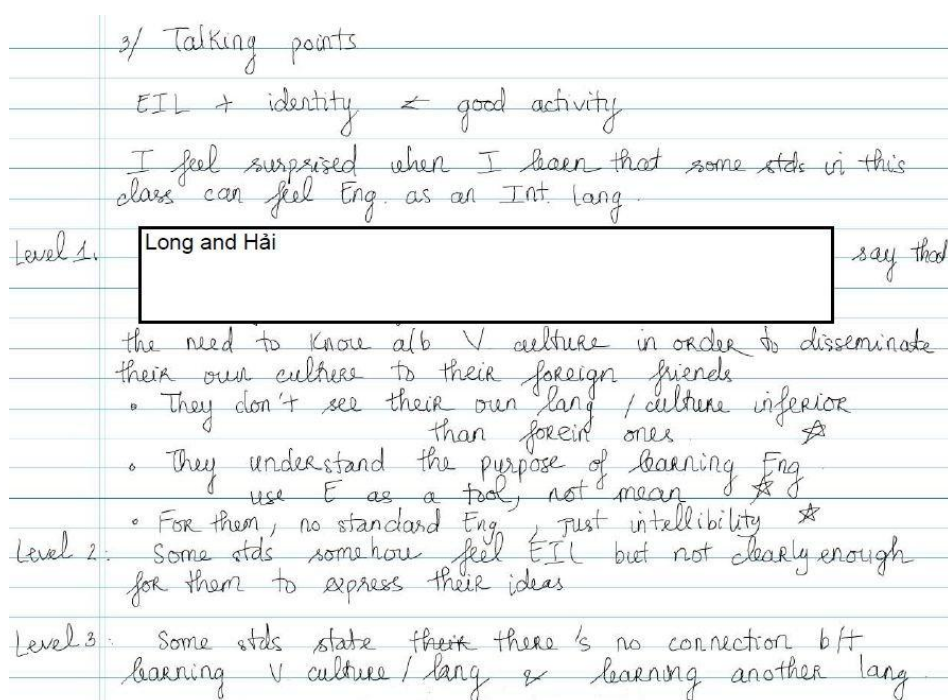 3/ Talking points
EIL + identity ← good activity
I feel surprised when I learn that some stds in this
class can feel Eng. as an Int. lang.
Level 1. Long and Hải say that
the need to know a/b V culture in order to disseminate
their own culture to their foreign friends
• They don't see their own lang / culture inferior
than forein ones ☆
• They understand the purpose of learning Eng
use E as a tool, not mean ☆
• For them, no standard Eng, just intellibility ☆
Level 2: Some stds somehow feel EIL but not clearly enough
for them to express their ideas
Level 3: Some stds state their there's no connection b/t
learning V culture / lang & learning another lang.